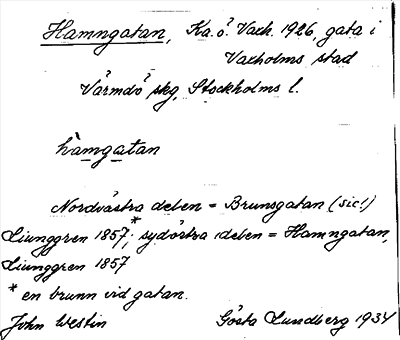 Hamngatan, Ka. ö. Vach. 1926, gata i
Vaxholms stad
Värmdö skg, Stockholms l.
hàmgatan
Nordvästra delen = Brunsgatan (sic!)
Ljunggren 1857;* sydöstra delen = Hamngatan,
Ljunggren 1857
* en brunn vid gatan.
John Westin Gösta Lundberg 1934